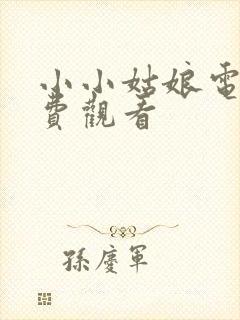 小小姑娘電
費觀看
孫慶軍